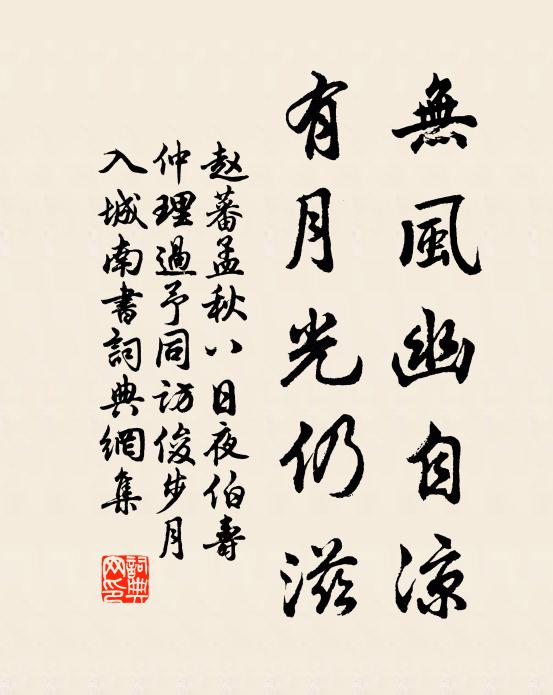 無風幽自涼
有月光仍滋
赵蕃孟秋八日夜伯壽
仲理過予同访俊步月
入城南書詞典網集
詞典网印